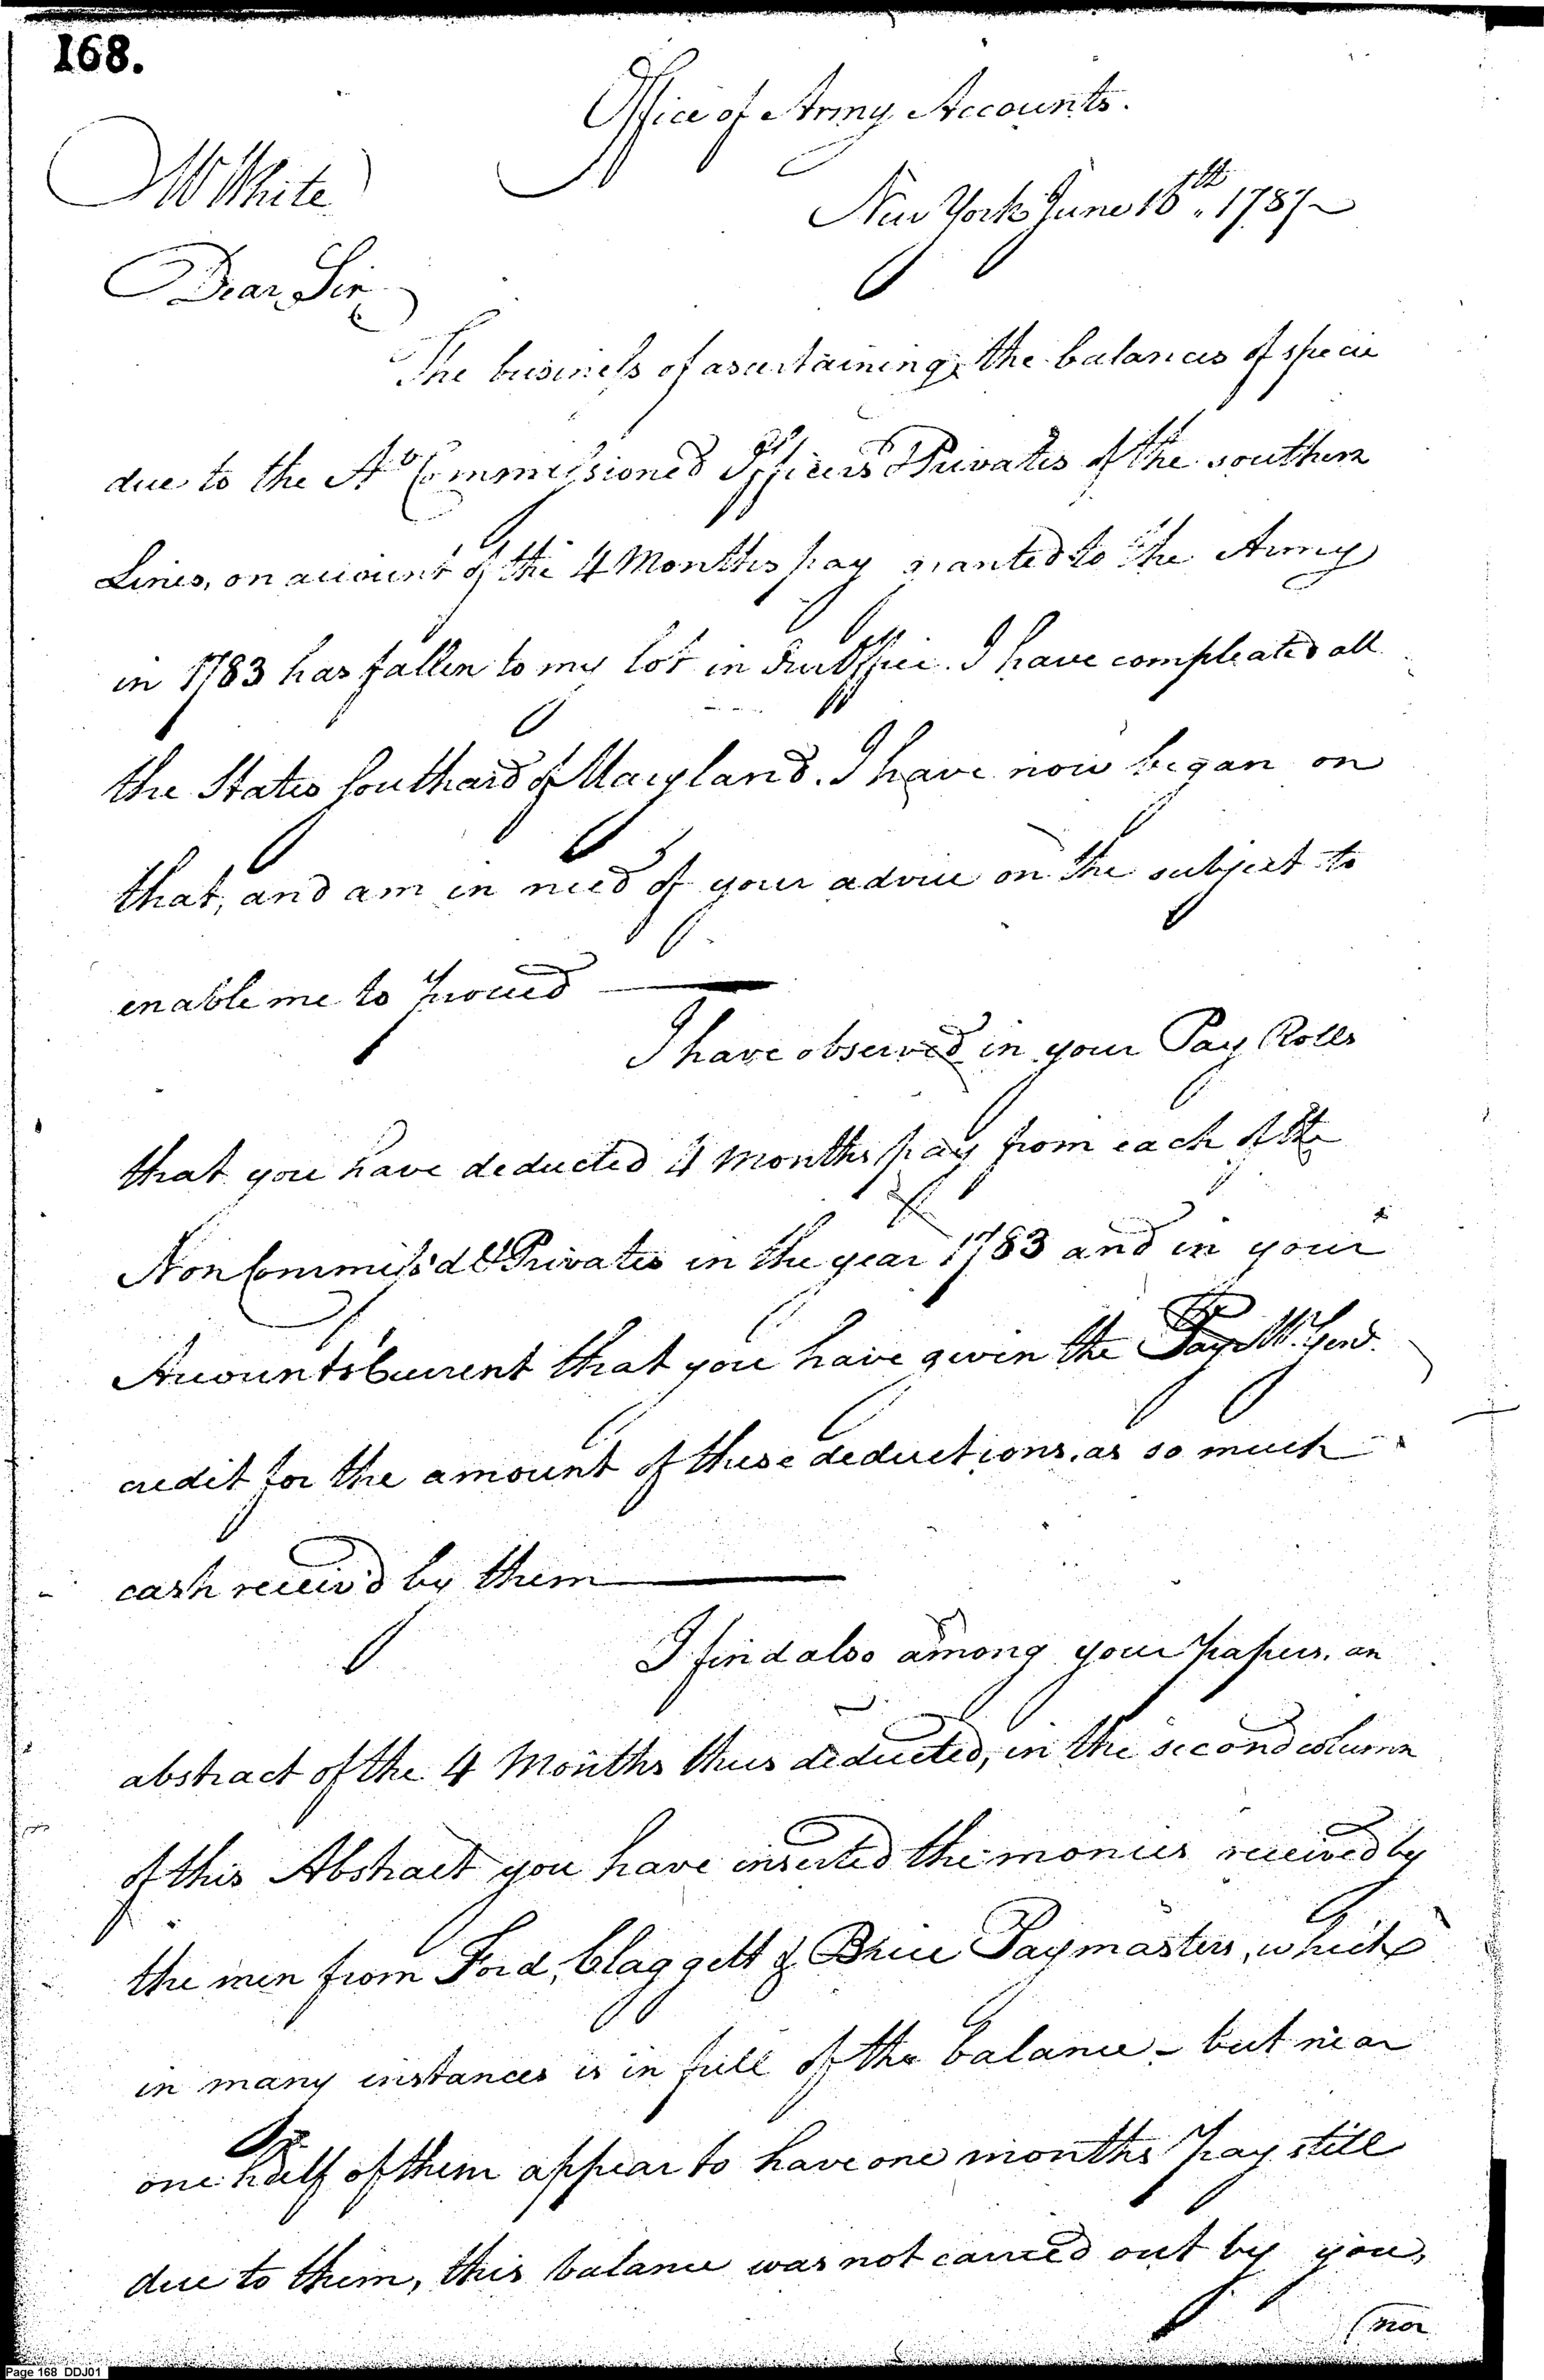 168.
Office of Army Accounts.
New York June 16th. 1787
W White
Dear Sir
The business of ascertaining the balances of specie
due to the No Commissioned Officers & Privates of the southern
Lines, on account of the 4 Months pay granted to the Army
in 1783 has fallen to my lot in Office. I have compleated all
the States Southard of Maryland. I have now began on
that, and am in need of your advice on the subject to
enable me to proceed
I have observed in your Pay Rolls
that you have deducted 4 Months pay from each of the
Non Commiss'd & Privates in the year 1783 and in your
Accounts Current that you have given the Pay Mr. Genl.
credit for the amount of these deductions, as so much
cash receiv'd by them
I find also among your papers, an
abstract of the 4 Months thus deducted, in the second column
of this Abstract you have inserted the monies received by
the men from Ford, Claggett & Brice Paymasters, which
in many instances is in full of the balance - but near
one half of them appear to have one months pay still
due to them, this balance was not carried out by you,
(nor
Page 168 DDJ01